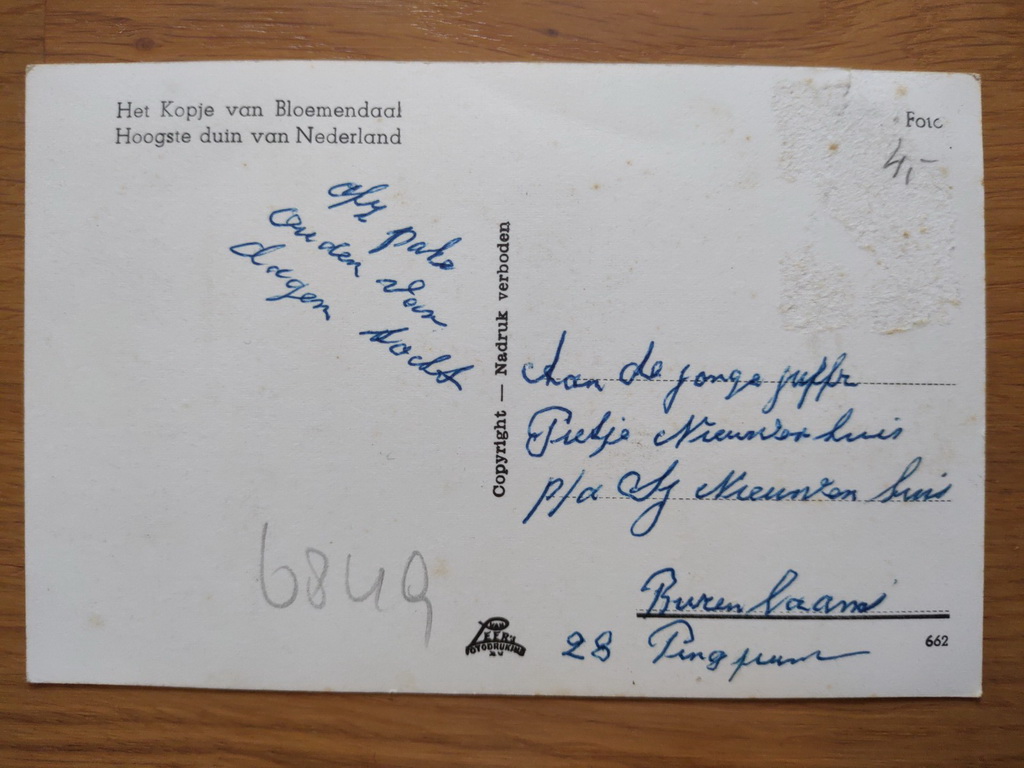 Het Kopje van Bloemendaal
Hoogste duin van Nederland
Foto
4,-
afz pake
ouden van
dagen tocht
Copyright — Nadruk verboden
Aan de jonge juffr
Pietje Nieuwenhuis
p/a Sj Nieuwenhuis
Burenlaan
28 Pingjum
6849
VAN
LEER'S
FOTODRUKIND.
N.V.
662